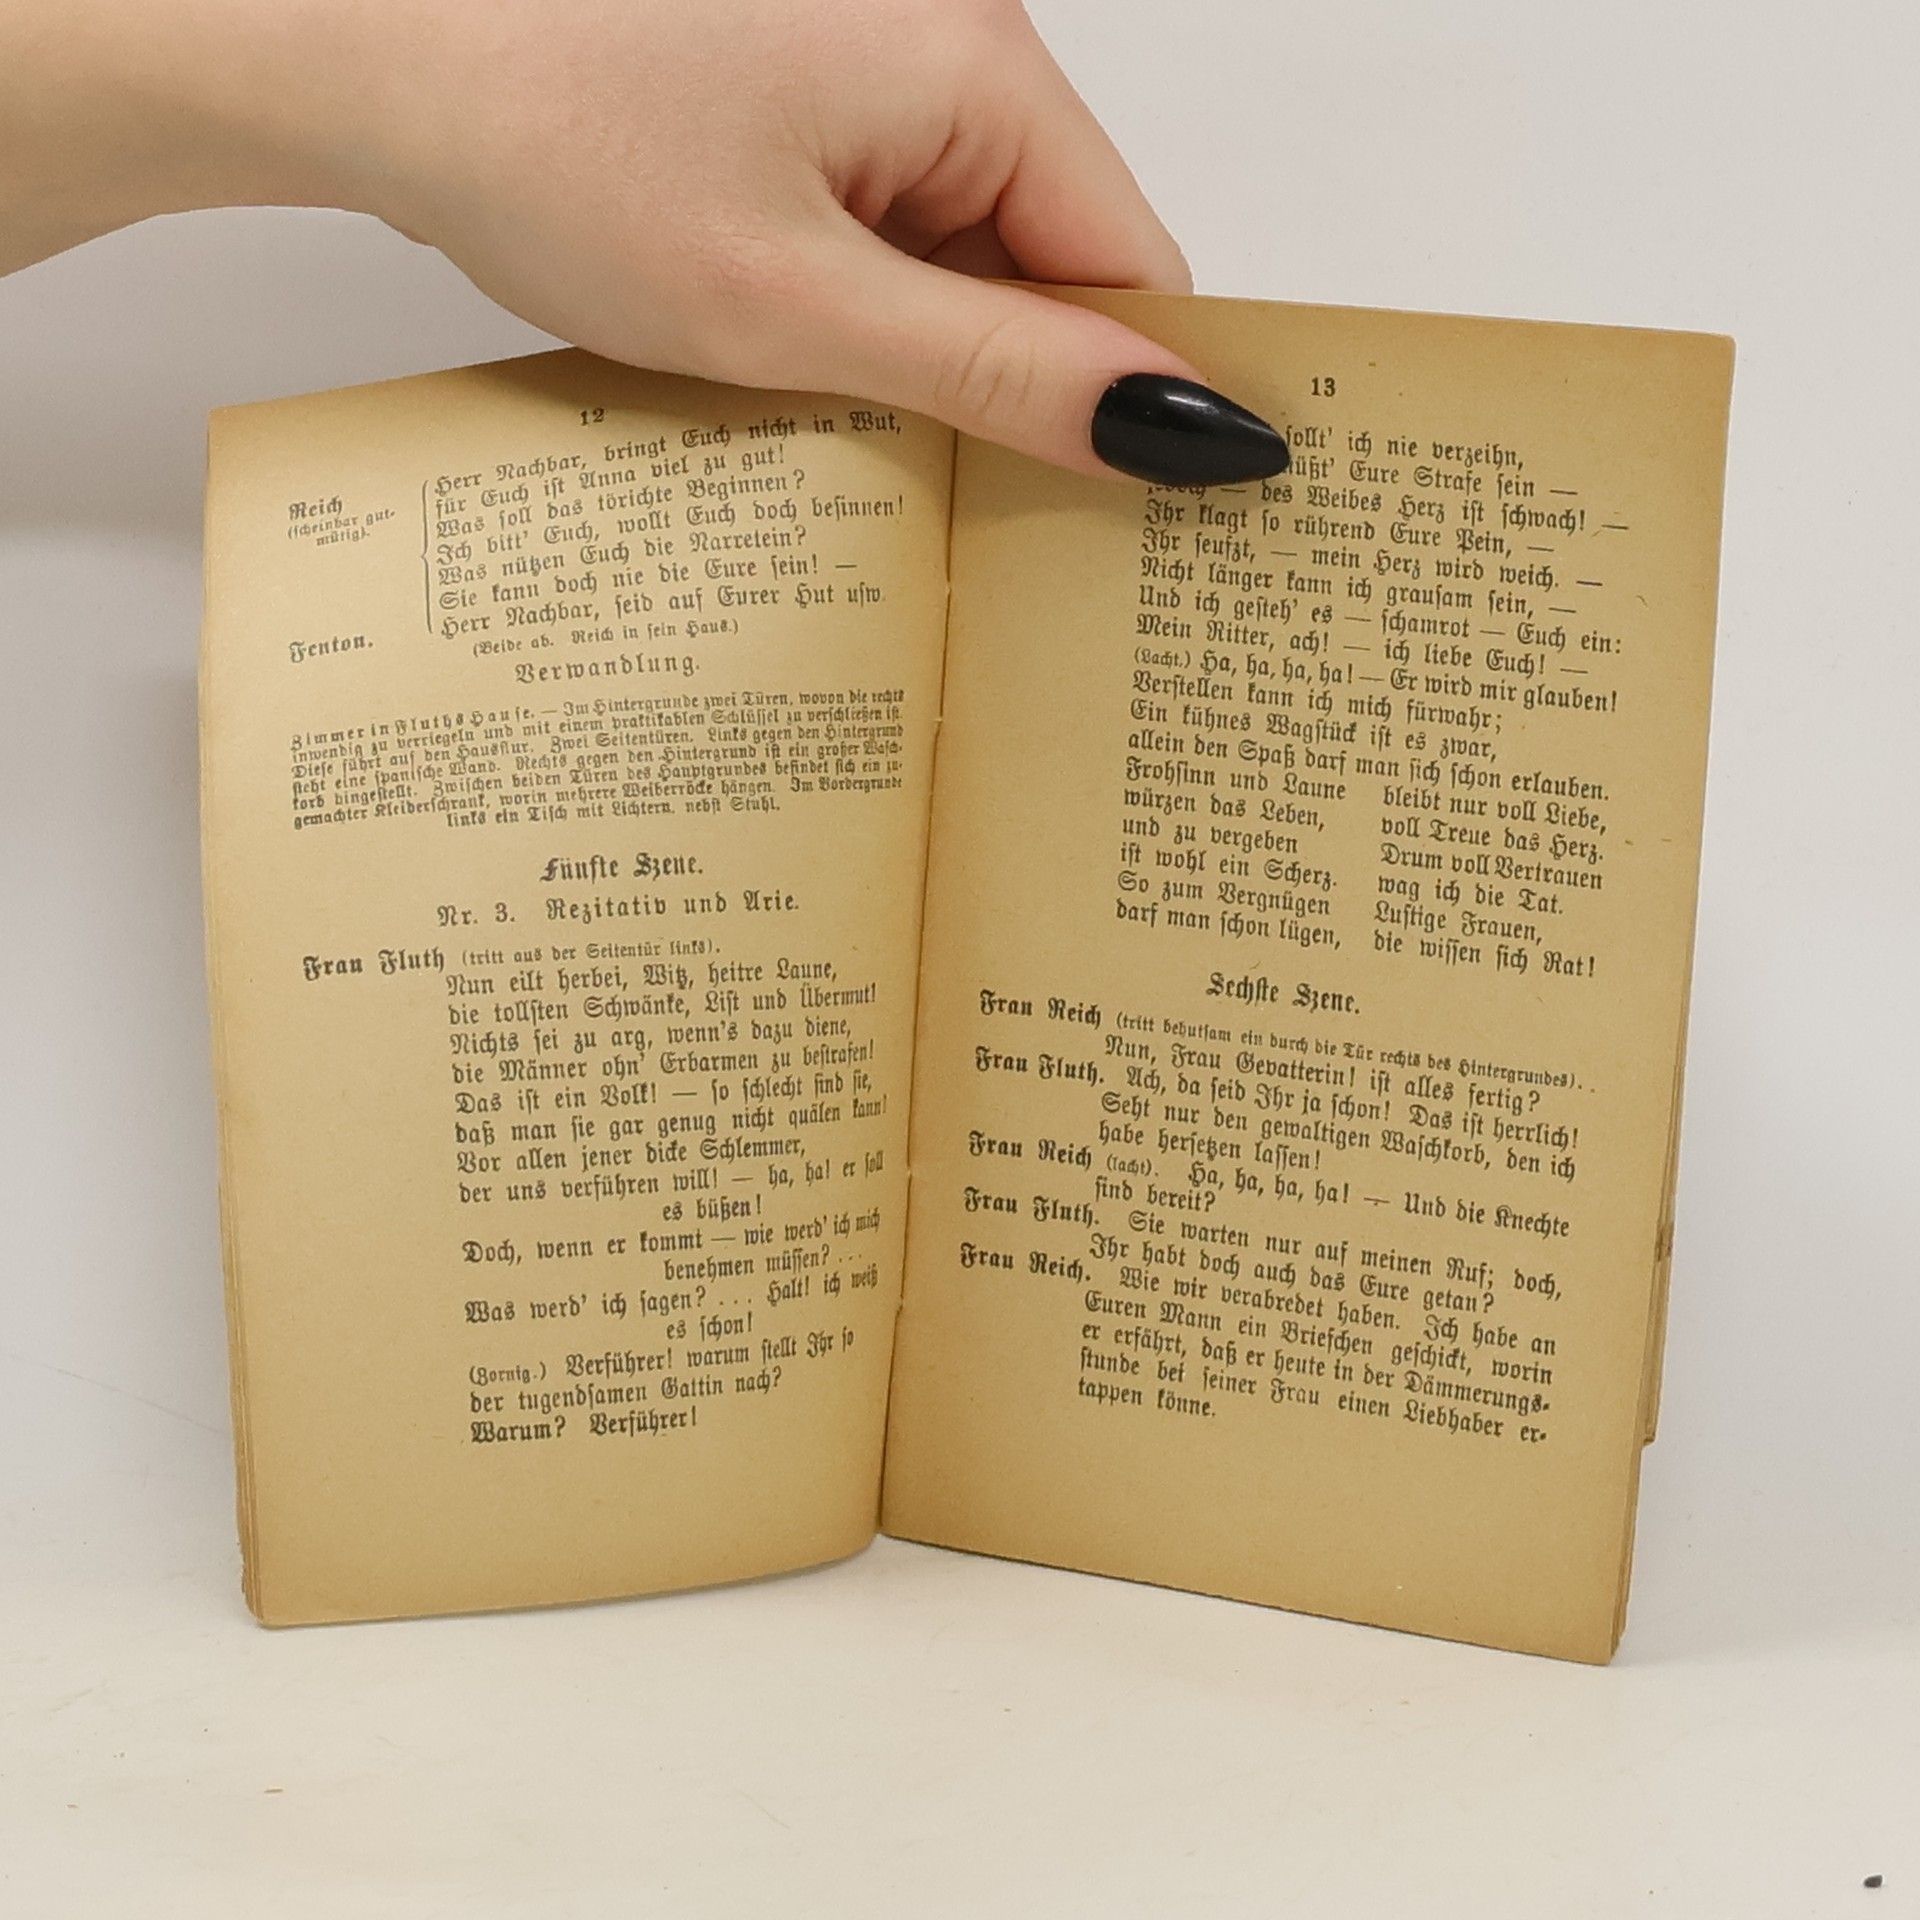 12
Herr Nachbar, bringt Euch nicht in Wut,
für Euch ist Anna viel zu gut!
Reich
(scheinbar gut-
mütig).
Was soll das törichte Beginnen?
Ich bitt' Euch, wollt Euch doch besinnen!
Was nützen Euch die Narretein?
Sie kann doch nie die Eure sein! —
Fenton.
Herr Nachbar, seid auf Eurer Hut usw.
(Beide ab. Reich in sein Haus.)
Verwandlung.
Zimmer in Fluths Hause. — Im Hintergrunde zwei Türen, wovon die rechts
inwendig zu verriegeln und mit einem praktikablen Schlüssel zu verschließen ist.
Diese führt auf den Hausflur. Zwei Seitentüren. Links gegen den Hintergrund
steht eine spanische Wand. Rechts gegen den Hintergrund ist ein großer Wasch-
korb hingestellt. Zwischen beiden Türen des Hauptgrundes befindet sich ein zu-
gemachter Kleiderschrank, worin mehrere Weiberröcke hängen. Im Vordergrunde
links ein Tisch mit Lichtern, nebst Stuhl.
Fünfte Szene.
Nr. 3. Rezitativ und Arie.
Frau Fluth (tritt aus der Seitentür links).
Nun eilt herbei, Witz, heitre Laune,
die tollsten Schwänke, List und Übermut!
Nichts sei zu arg, wenn's dazu diene,
die Männer ohn' Erbarmen zu bestrafen!
Das ist ein Volk! — so schlecht sind sie,
daß man sie gar genug nicht quälen kann!
Vor allen jener dicke Schlemmer,
der uns verführen will! — ha, ha! er soll
es büßen!
Doch, wenn er kommt — wie werd' ich mich
benehmen müssen? ...
Was werd' ich sagen? ... Halt! ich weiß
es schon!
(Zornig.) Verführer! warum stellt Ihr so
der tugendsamen Gattin nach?
Warum? Verführer!
13
sollt' ich nie verzeihn,
müßt' Eure Strafe sein —
— des Weibes Herz ist schwach! —
Ihr klagt so rührend Eure Pein, —
Ihr seufzt, — mein Herz wird weich. —
Nicht länger kann ich grausam sein, —
Und ich gesteh' es — schamrot — Euch ein:
Mein Ritter, ach! — ich liebe Euch! —
(Lacht.) Ha, ha, ha, ha! — Er wird mir glauben!
Verstellen kann ich mich fürwahr;
Ein kühnes Wagstück ist es zwar,
allein den Spaß darf man sich schon erlauben.
Frohsinn und Laune
würzen das Leben,
und zu vergeben
ist wohl ein Scherz.
So zum Vergnügen
darf man schon lügen,
bleibt nur voll Liebe,
voll Treue das Herz.
Drum voll Vertrauen
wag ich die Tat.
Lustige Frauen,
die wissen sich Rat!
Sechste Szene.
Frau Reich (tritt behutsam ein durch die Tür rechts des Hintergrundes).
Nun, Frau Gevatterin! ist alles fertig?
Frau Fluth. Ach, da seid Ihr ja schon! Das ist herrlich!
Seht nur den gewaltigen Waschkorb, den ich
habe hersetzen lassen!
Frau Reich (lacht). Ha, ha, ha, ha! — Und die Knechte
sind bereit?
Frau Fluth. Sie warten nur auf meinen Ruf; doch,
Ihr habt doch auch das Eure getan?
Frau Reich. Wie wir verabredet haben. Ich habe an
Euren Mann ein Briefchen geschickt, worin
er erfährt, daß er heute in der Dämmerungs-
stunde bei seiner Frau einen Liebhaber er-
tappen könne.